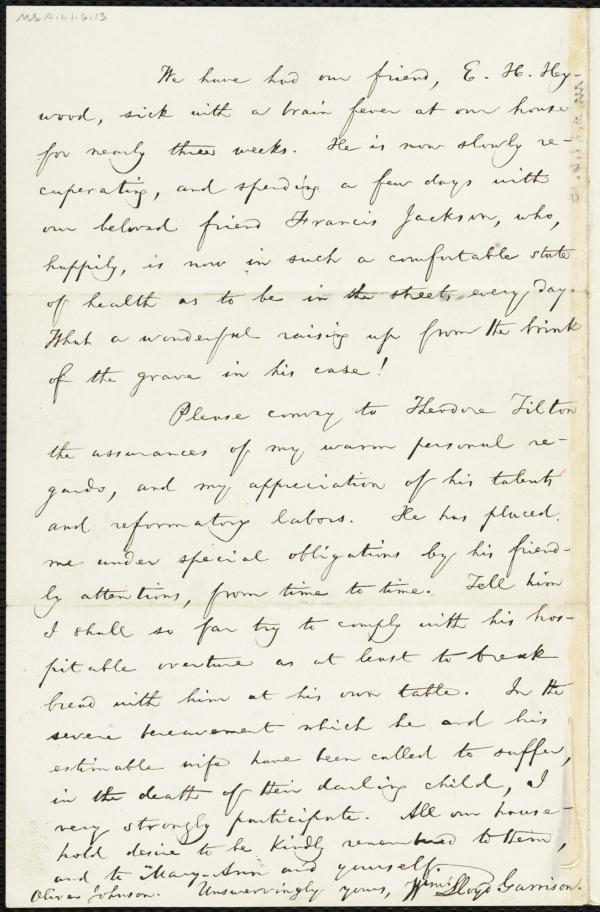 MS A.1.1.6.13
We have had our friend, E. H. Hey-
wood, sick with a brain fever at our house
for nearly three weeks. He is now slowly re-
cuperating, and spending a few days with
our beloved friend Francis Jackson, who,
happily, is now in such a comfortable state
of health as to be in the street, every day.
What a wonderful raising up from the brink
of the grave in his case!
Please convey to Theodore Tilton
the assurances of my warm personal re-
gards, and my appreciation of his talents
and reformatory labors. He has placed
me under special obligations by his friend-
ly attentions, from time to time. Tell him
I shall so far try to comply with his hos-
pitable overture as at least to break
bread with him at his own table. In the
severe bereavement which he and his
estimable wife have been called to suffer,
in the death of their darling child, I
very strongly participate. All our house-
hold desire to be kindly remembered to them,
and to Mary-Ann and yourself.
Oliver Johnson. Unswervingly yours, Wm. Lloyd Garrison.